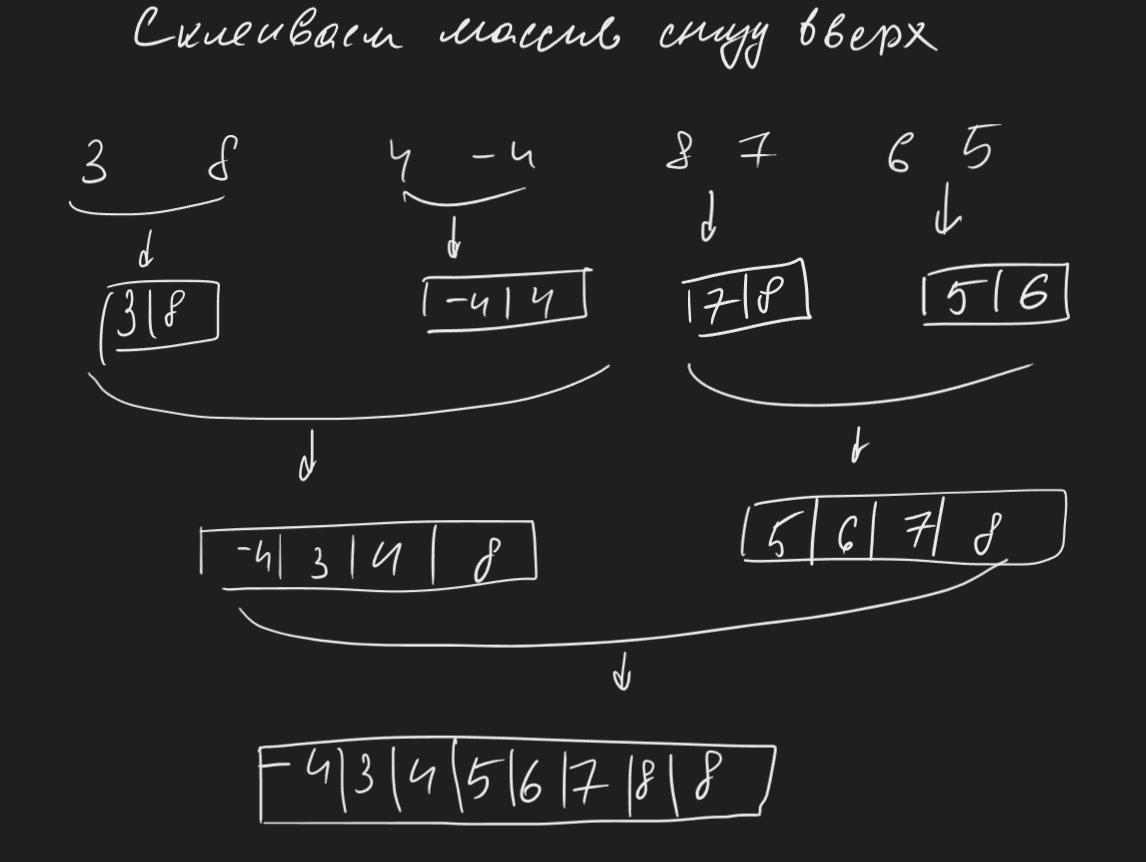 Склеиваем массив снизу вверх
3 8 4 -4 8 7 6 5
3|8 -4|4 7|8 5|6
-4|3|4|8 5|6|7|8
-4|3|4|5|6|7|8|8